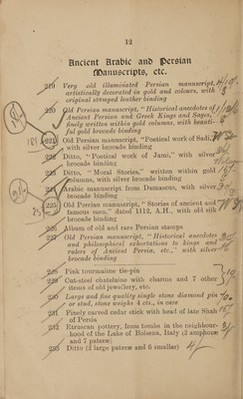 12
Ancient Arabic and Persian
Manuscripts, etc.
219 Very old illuminated Persian manuscript,
artistically decorated in gold and colours, with
original stamped leather binding
220 Old Persian manuscript, "Historical anecdotes of
Ancient Persian and Greek Kings and Sages,
finely written within gold columns, with beauti-
ful gold brocade binding
221 Old Persian manuscript, "Poetical work of Sadi,"
with silver brocade binding
222 Ditto, "Poetical work of Jami," with silver
brocade binding
223 Ditto, "Moral Stories," written within gold
columns, with silver brocade binding
224 Arabic manuscript from Damascus, with silver
brocade binding
225 Old Persian manuscript, "Stories of ancient and
famous men," dated 1112, A.H., with old silk
brocade binding
226 Album of old and rare Persian stamps
227 Old Persian manuscript, "Historical anecdotes
and philosophical exhortations to kings and
rulers of Ancient Persia, etc.," with silver
brocade binding
228 Pink tourmaline tie-pin
229 Cut-steel chatelaine with charms and 7 other
items of old jewellery, etc.
230 Large and fine quality single stone diamond pin
or stud, stone weighs 4 cts., in case
231 Finely carved cedar stick with head of late Shah
of Persia
232 Etruscan pottery, from tombs in the neighbour-
hood of the Lake of Bolsena, Italy (2 amphoræ
and 7 pateræ)
233 Ditto (2 large pateræ and 6 smaller)